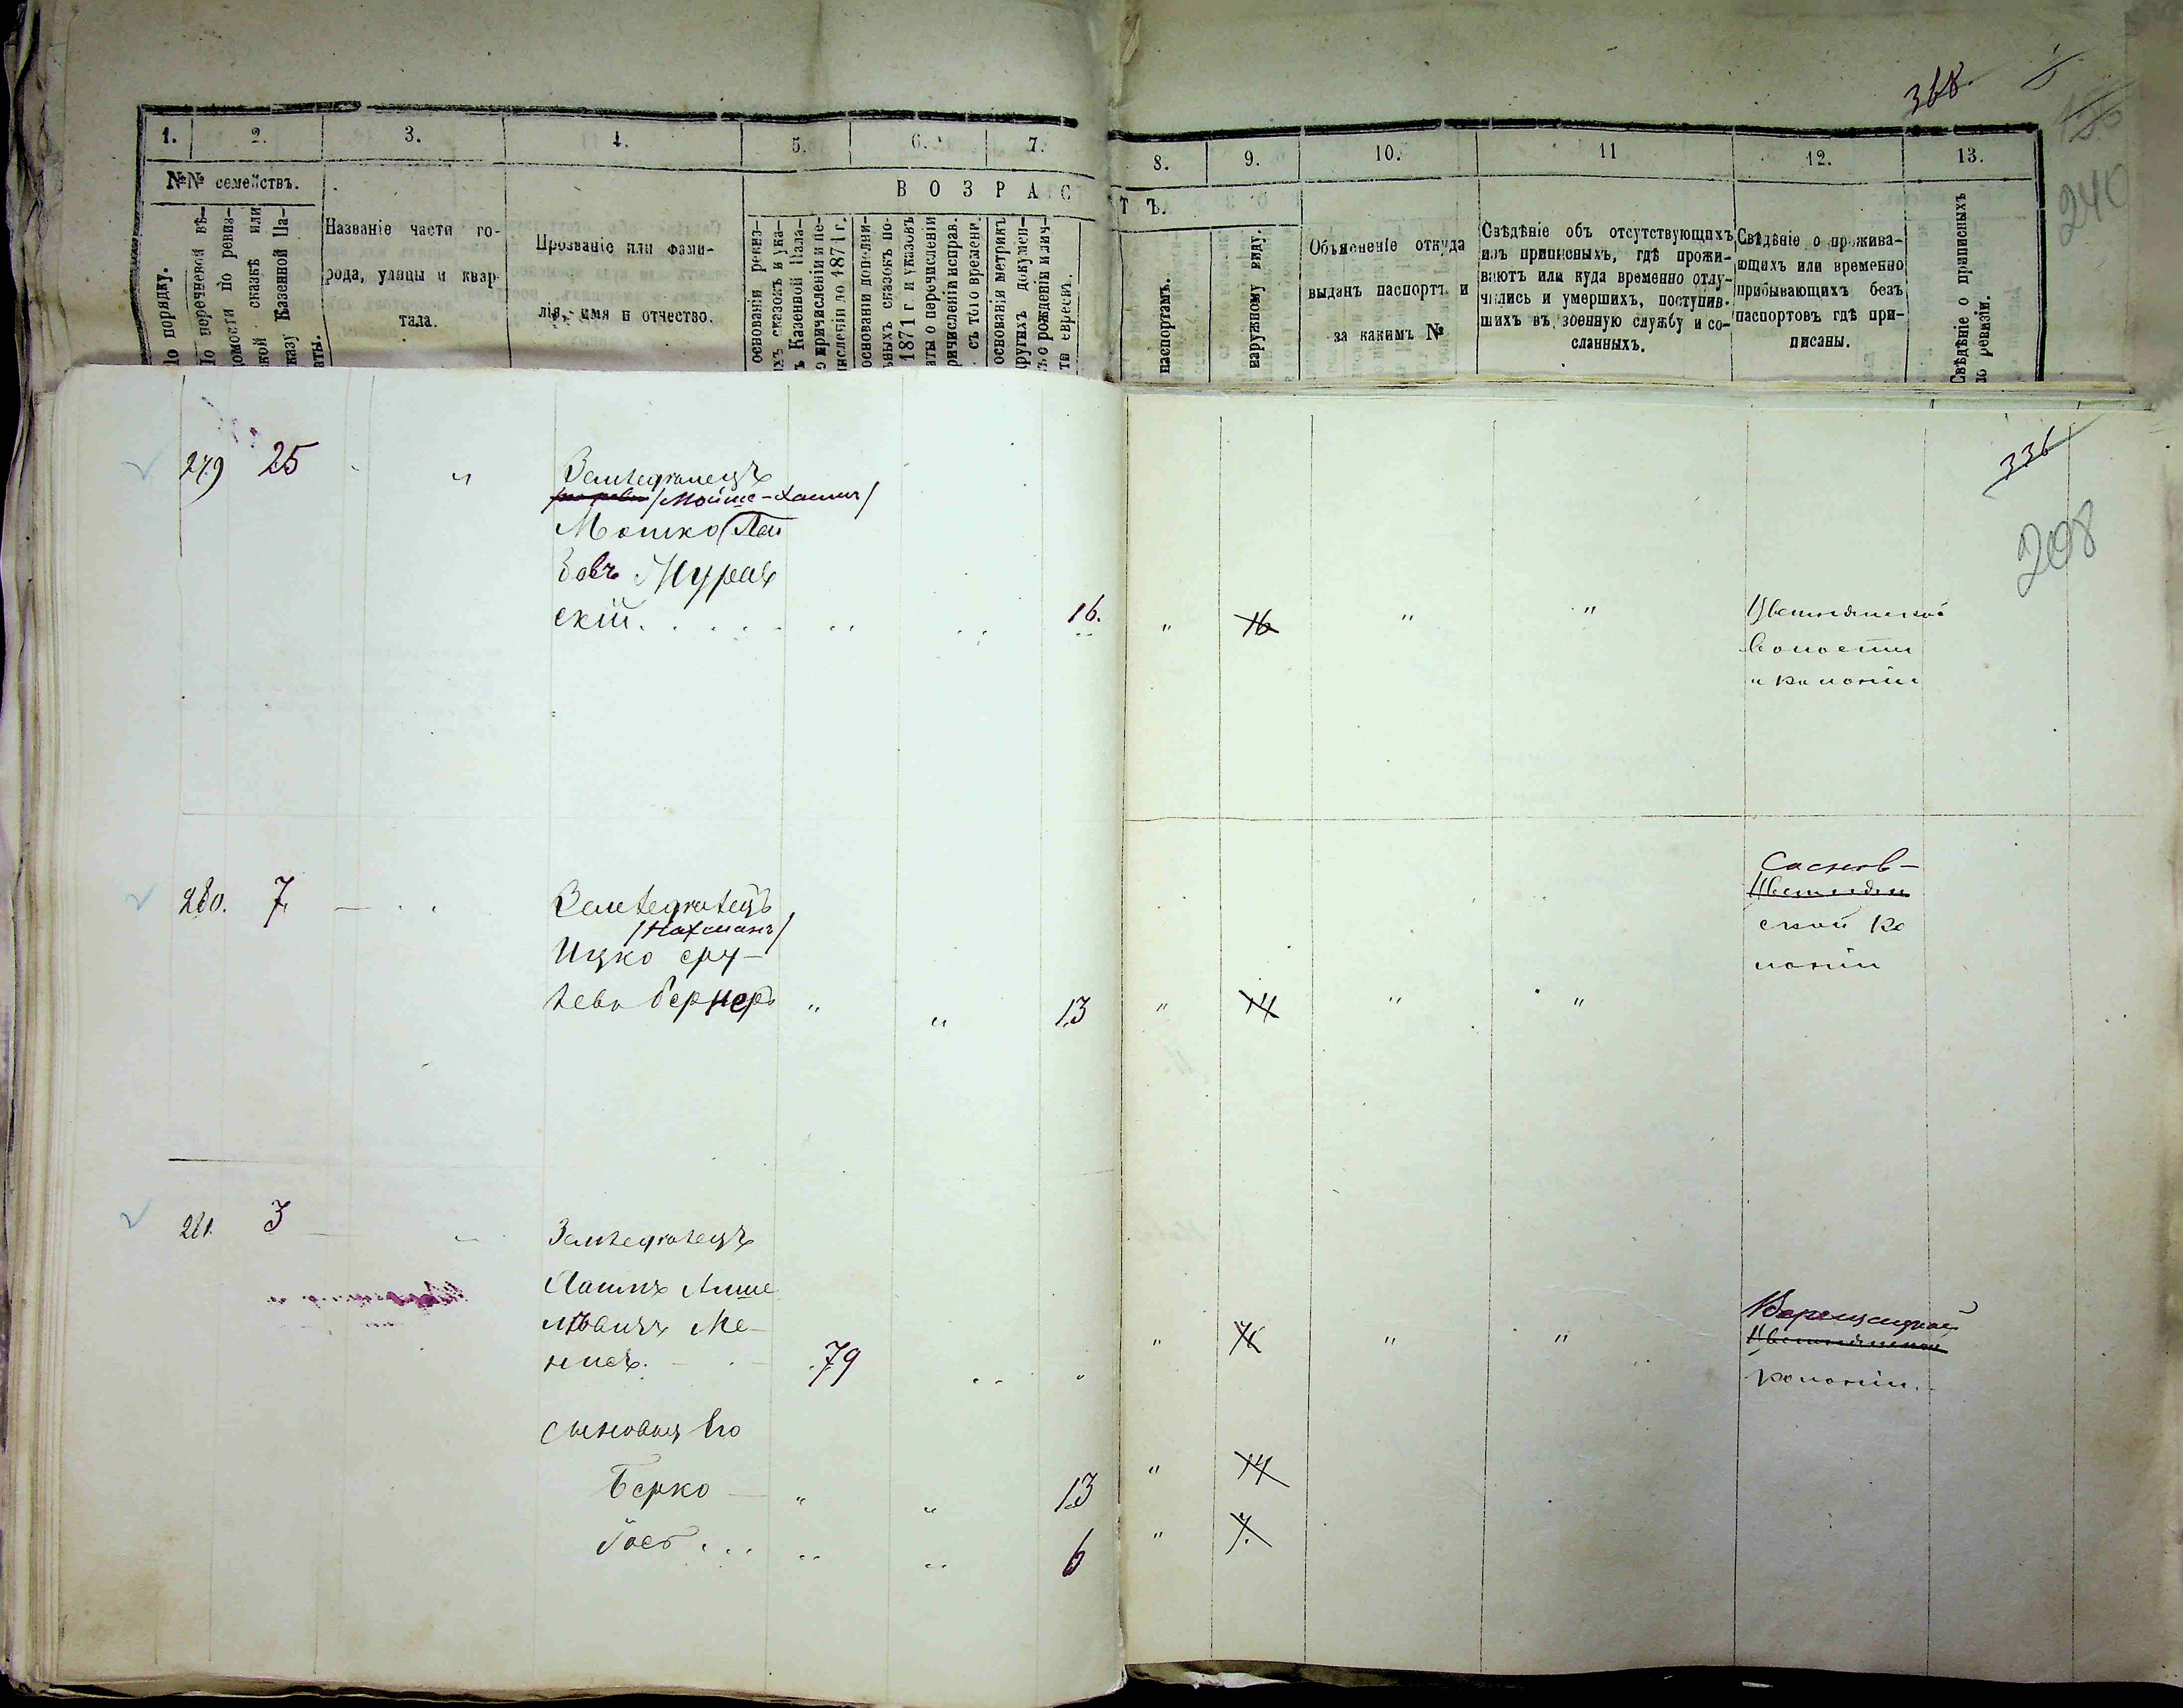 368.
240
1.
2.
3.
4.
5.
6.
7.
8.
9.
10.
11
12.
13.
№№ семействъ.
В О З Р А С Т Ъ.
По порядку.
Названіе части го-
рода, улицы и квар
тала.
Прозваніе или фами-
лія, имя и отчество.
основаніи ревиз-
ихъ сказокъ и ука-
ъ Казенной Пала-
о причисленіи и пе-
числеліи до 1871 г.
основаніи дополни-
ьныхъ сказокъ по-
1871 г. и указовъ
аты о перечисленіи
ричисленіи исправ.
съ того времени.
основаніи метрикъ
другихъ докумен-
ъ о рожденіи и лич-
ти евреевъ.
паспортамъ.
наружному виду.
Объясненіе откуда
выданъ паспортъ и
за какимъ №
Свѣдѣніе объ отсутствующихъ
изъ приписныхъ, гдѣ прожи-
ваютъ или куда временно отлу-
чились и умершихъ, поступив-
шихъ въ военную службу и со-
сланныхъ.
Свѣдѣніе о прожива-
ющихъ или временно
прибывающихъ безъ
паспортовъ гдѣ при-
писаны.
Свѣдѣніе о приписныхъ
по ревизіи.
336
208
279 25 " Земледѣлецъ
/Мойше-Хаимъ/
Мошко Лей
зовъ Журав
скій. 16. " 16 " " Цветнянской
волости
и колоніи
280. 7. Земледѣлецъ
/Нахманъ/
Ицко сру-
левъ Бернеръ " " 13 " 14 " "
Саснов-
Цветнян
ской ко
лоніи
281. 3 Земледѣлецъ
Хаимъ Анше
лѣвичъ Ме-
нисъ. 79 " 76 " "
Цветнянской
колоніи.
сыновья его
Берко " " 13 " 14
Іосъ 6 " 7.